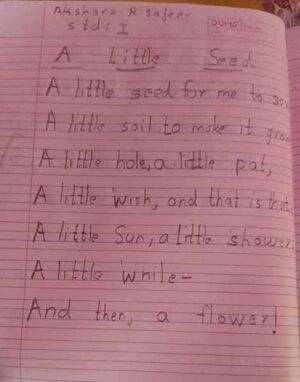 Akshara R Sajeev
Std: I
DOMS
A Little Seed
A little seed for me to sow
A little soil to make it grow
A little hole, a little pat,
A little wish, and that is that,
A little Sun, a little shower,
A little while-
And then, a flower!